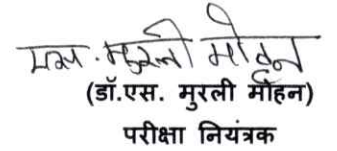 एस. मुरली मोहन
(डॉ.एस. मुरली मोहन)
परीक्षा नियंत्रक